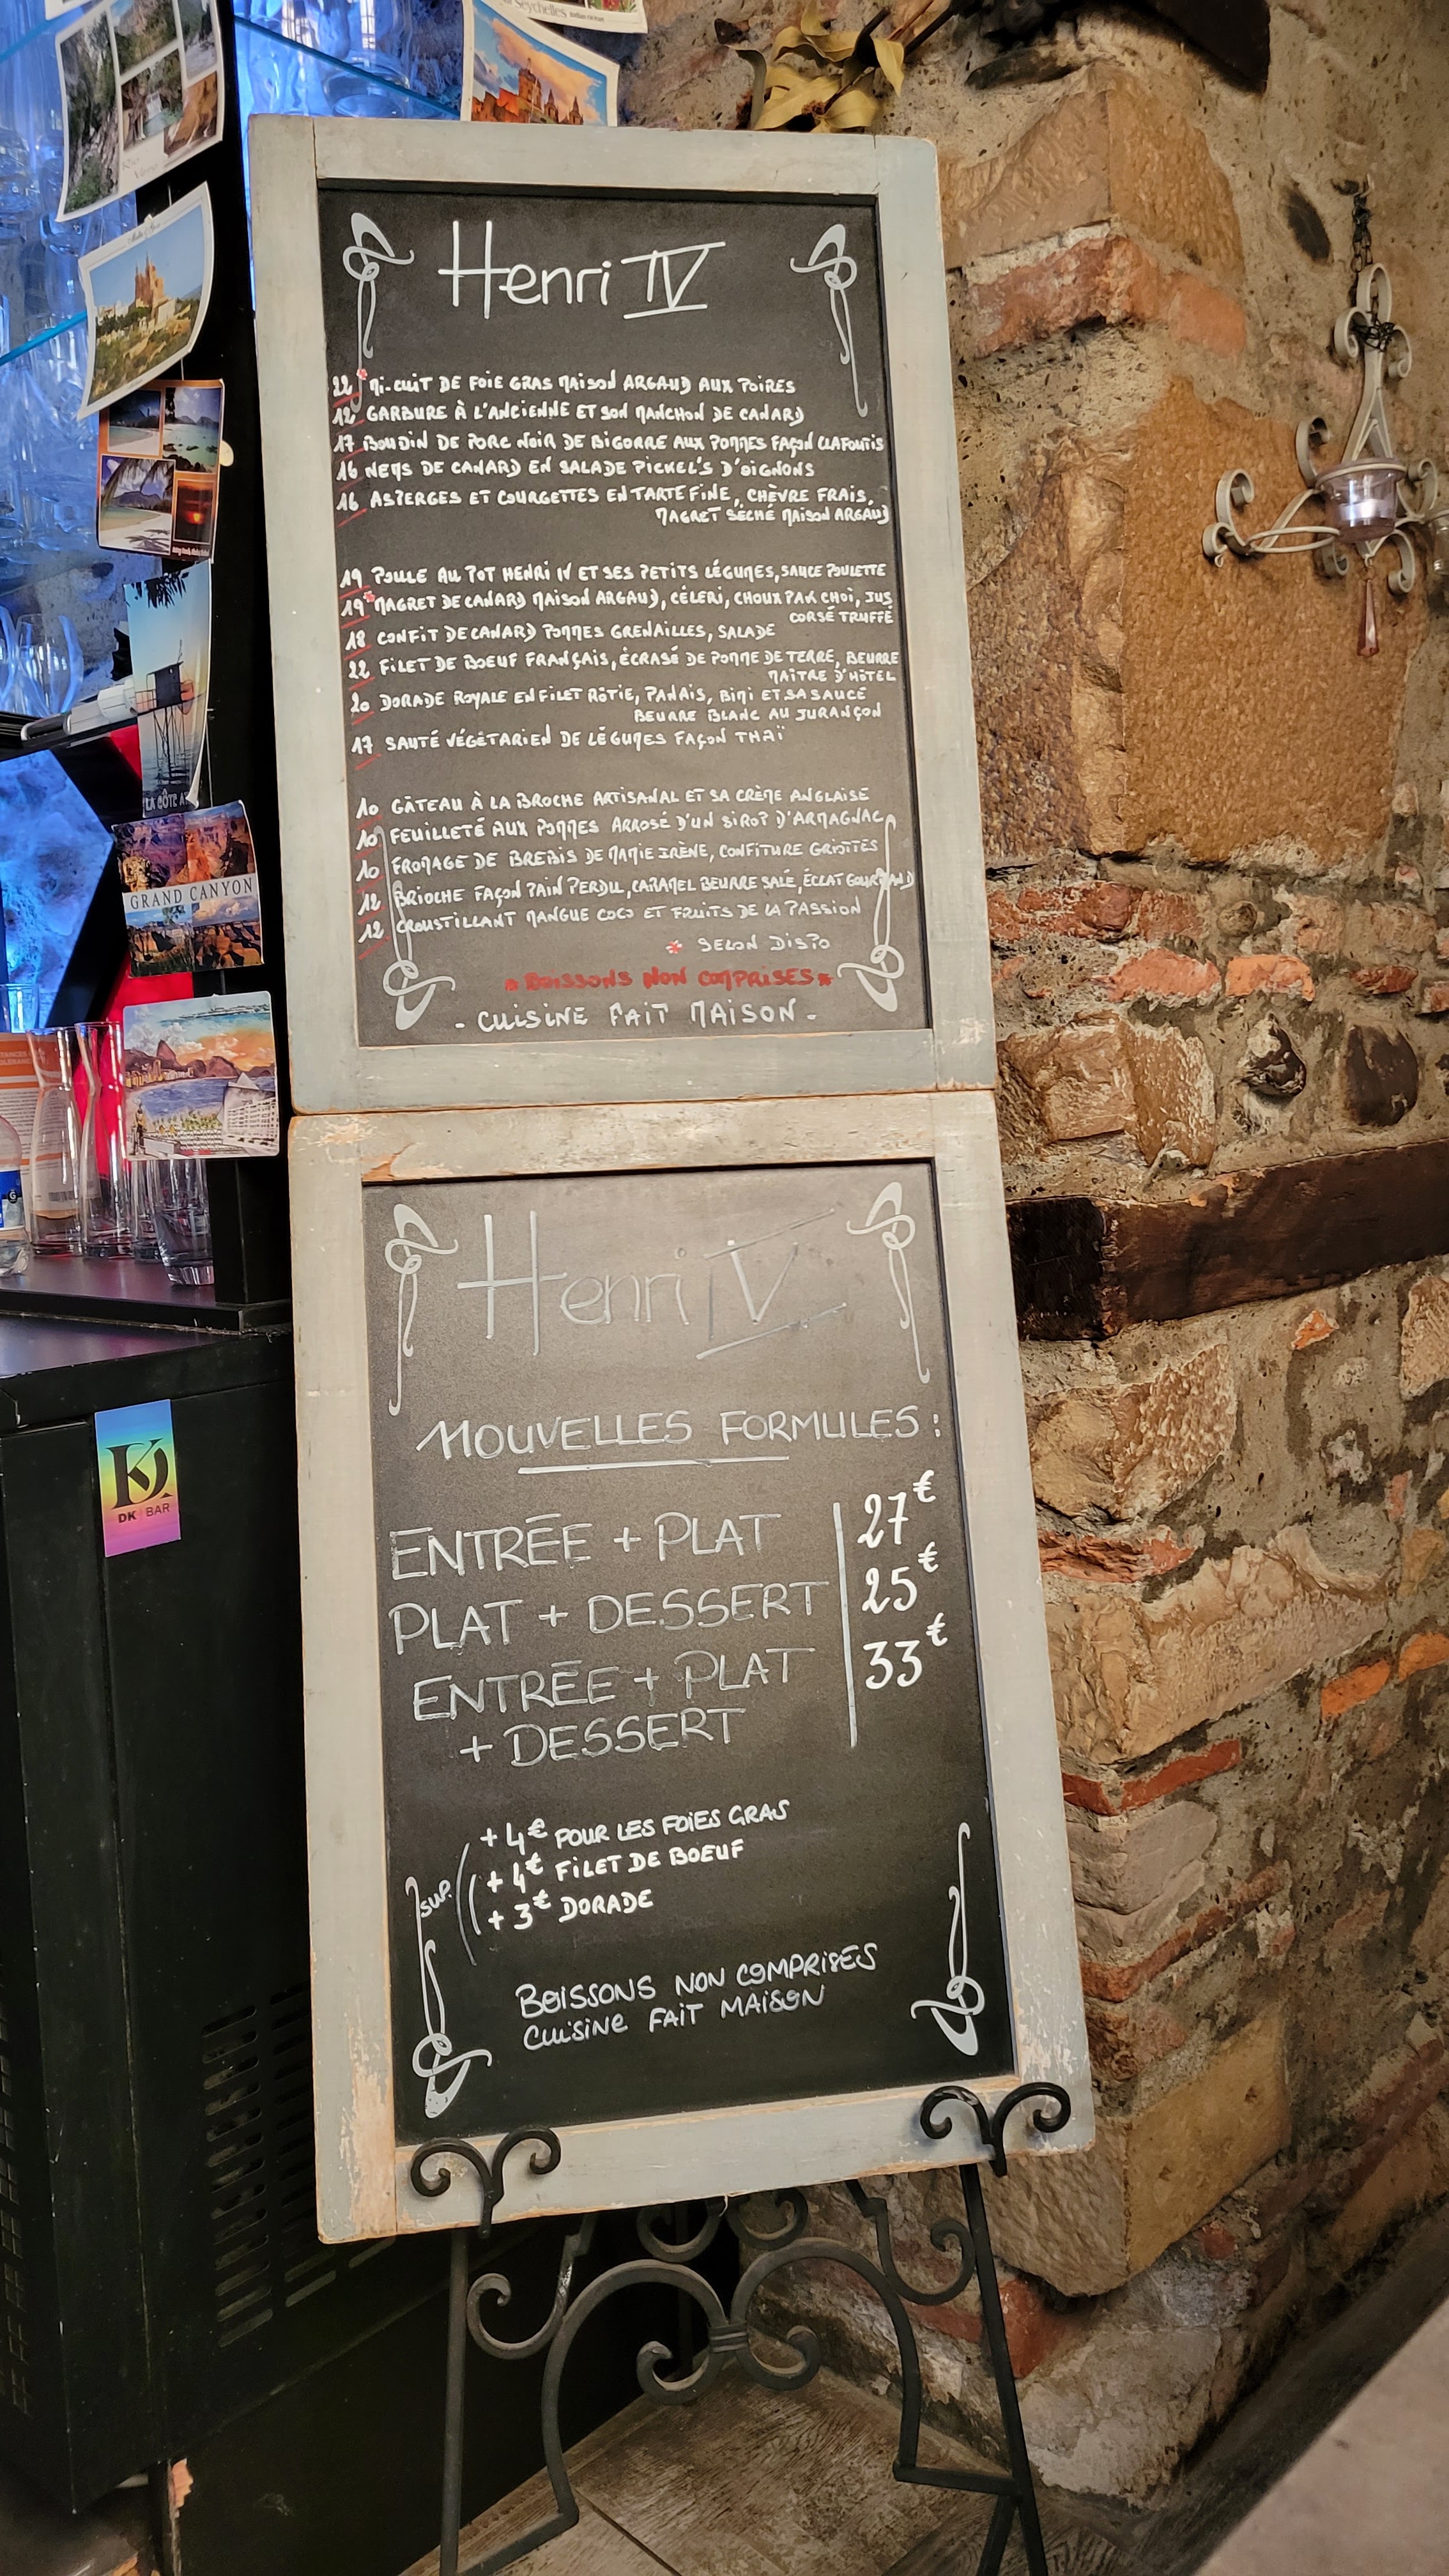 Seychelles
Henri IV
22 Mi-cuit de foie gras maison Argaud aux poires
12 Garbure à l'ancienne et son manchon de canard
17 Boudin de porc noir de Bigorre aux pommes façon clafoutis
16 Nems de canard en salade pickel's d'oignons
16 Asperges et courgettes en tarte fine, chèvre frais,
magret séché maison Argaud
19 Poule au pot Henri IV et ses petits légumes, sauce poulette
19 Magret de canard maison Argaud, céleri, choux pak choï, jus
corsé truffé
18 Confit de canard pommes grenailles, salade
22 Filet de boeuf français, écrasé de pomme de terre, beurre
maître d'hôtel
20 Dorade royale en filet rôtie, panais, bimi et sa sauce
beurre blanc au Jurançon
17 Sauté végétarien de légumes façon thaï
10 Gâteau à la broche artisanal et sa crème anglaise
10 Feuilleté aux pommes arrosé d'un sirop d'Armagnac
10 Fromage de brebis de Mamie Irène, confiture griottes
12 Brioche façon pain perdu, caramel beurre salé, éclat gourmand
12 Croustillant mangue coco et fruits de la passion
* selon dispo
* Boissons non comprises *
- Cuisine fait maison -
GRAND CANYON
Henri IV
NOUVELLES FORMULES :
ENTRÉE + PLAT 27€
PLAT + DESSERT 25€
ENTRÉE + PLAT 33€
+ DESSERT
DK BAR
sup.
+ 4€ POUR LES FOIES GRAS
+ 4€ FILET DE BOEUF
+ 3€ DORADE
BOISSONS NON COMPRISES
CUISINE FAIT MAISON